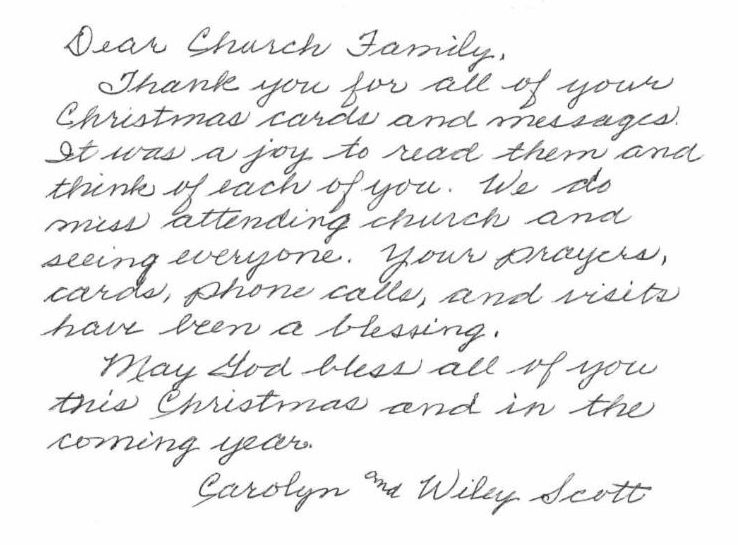 Dear Church Family,
Thank you for all of your
Christmas cards and messages.
It was a joy to read them and
think of each of you. We do
miss attending church and
seeing everyone. Your prayers,
cards, phone calls, and visits
have been a blessing.
May God bless all of you
this Christmas and in the
coming year.
Carolyn and Wiley Scott